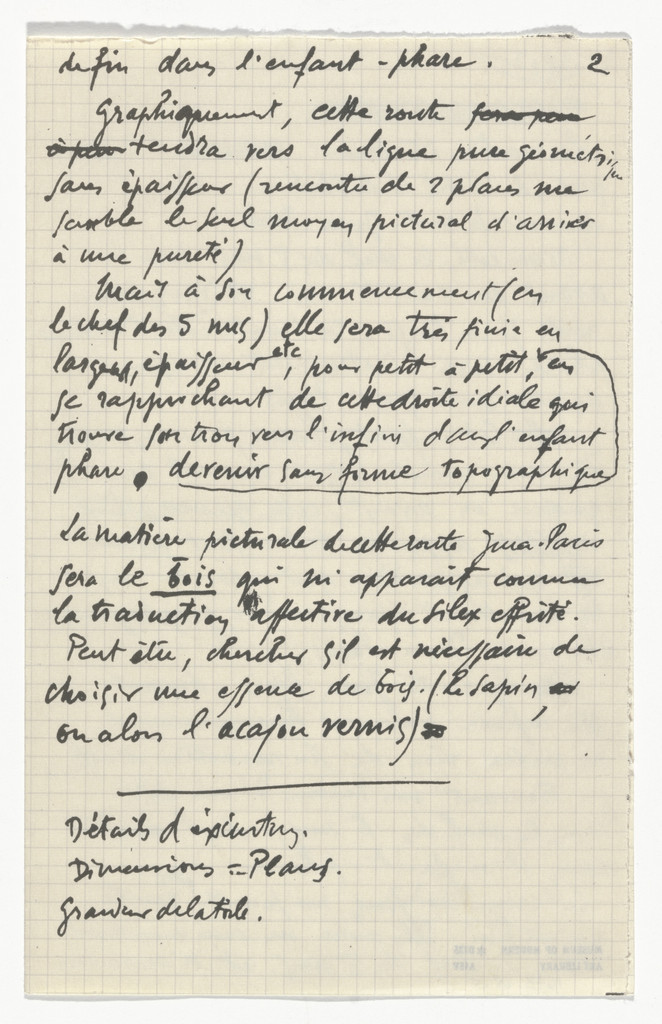 de fin dans l'enfant-phare. 2
Graphiquement, cette route
tendra vers la ligne pure géométrique
sans épaisseur (rencontre de 2 plans me
semble le seul moyen pictural d'arriver
à une pureté)
Mais à son commencement (en
le chef des 5 nus) elle sera très finie en
largeur, épaisseur etc, pour petit à petit, en
se rapprochant de cette droite idéale qui
trouve son trou vers l'infini dans l'enfant
phare. devenir sans forme topographique
La matière picturale de cette route Jura-Paris
sera le bois qui m'apparait comme
la traduction affective du silex effrité.
Peut être, chercher s'il est nécessaire de
choisir une essence de bois. (Le sapin,
ou alors l'acajou vernis)
Détails d'exécution.
Dimensions = Plans.
Grandeur de la toile.